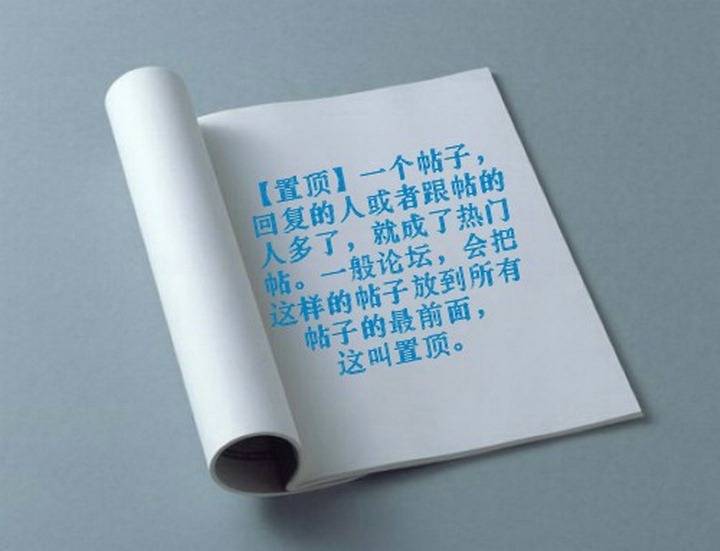 【置顶】一个帖子，
回复的人或者跟帖的
人多了，就成了热门
帖。一般论坛，会把
这样的帖子放到所有
帖子的最前面，
这叫置顶。